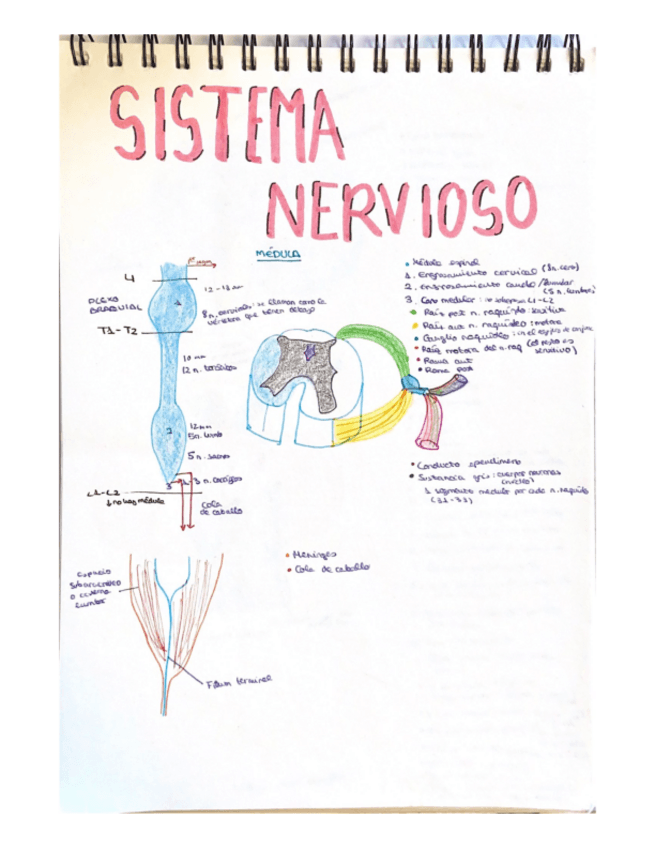 SISTEMA
NERVIOSO
MÉDULA
PLEXO
BRAQUIAL
T1-T2
12-13 mm
8 n. cervicales: se llaman como la
vértebra que tienen debajo
10 mm
12 n. torácicos
12 mm
5n. lumb
5 n. sacros
3
L1-L2
↓ no hay médula
Cola
de caballo
• Médula espinal
1. Engrosamiento cervical (8n. cerv)
2. engrosamiento caudal / lumbar
(5 n. lumbares)
3. Cono medular: L1-L2
• Raíz post n. raquídeo: sensitiva
• Raíz ant n. raquídeo: motora
• Ganglio raquídeo:
• Raíz motora del n. raq (el resto es
sensitivo)
• Rama ant
• Rama post
• Conducto ependimario
• Sustancia gris: cuerpos neuronas
(núcleo)
1 segmento medular por cada n. raquídeo
(31-33)
• Meninges
• Cola de caballo
Espacio
subaracnoideo
o cisterna
lumbar
Filum terminal